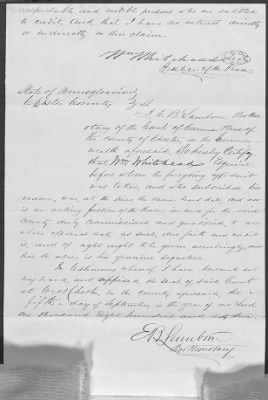 respectable and credible persons who are entitled
to credit, and that I have no interest directly
or indirectly in this claim.
Wm Whitehead
Justice of the Peace
State of Pennsylvania
Chester County
I, E B Lamborn Prothon
otary of the Court of Common Pleas of
the County of Chester, in the Common
wealth aforesaid, Do Hereby Certify
that Wm Whitehead Esquire
before whom the foregoing affidavit
was taken and who subscribed his
name, was at the time the same bears date, and now
is an acting Justice of the Peace in and for the said
County duly Commissioned and qualified, to all
whose official acts, as such, due faith and credit
is, and of right ought to be given accordingly, and
that the above is his genuine signature.
In testimony whereof, I have hereunto set
my hand, and affixed the seal of said Court
at West Chester, in the County aforesaid, the
fifth day of September in the year of our Lord
one thousand eight hundred and sixty
E B Lamborn
Prothonotary